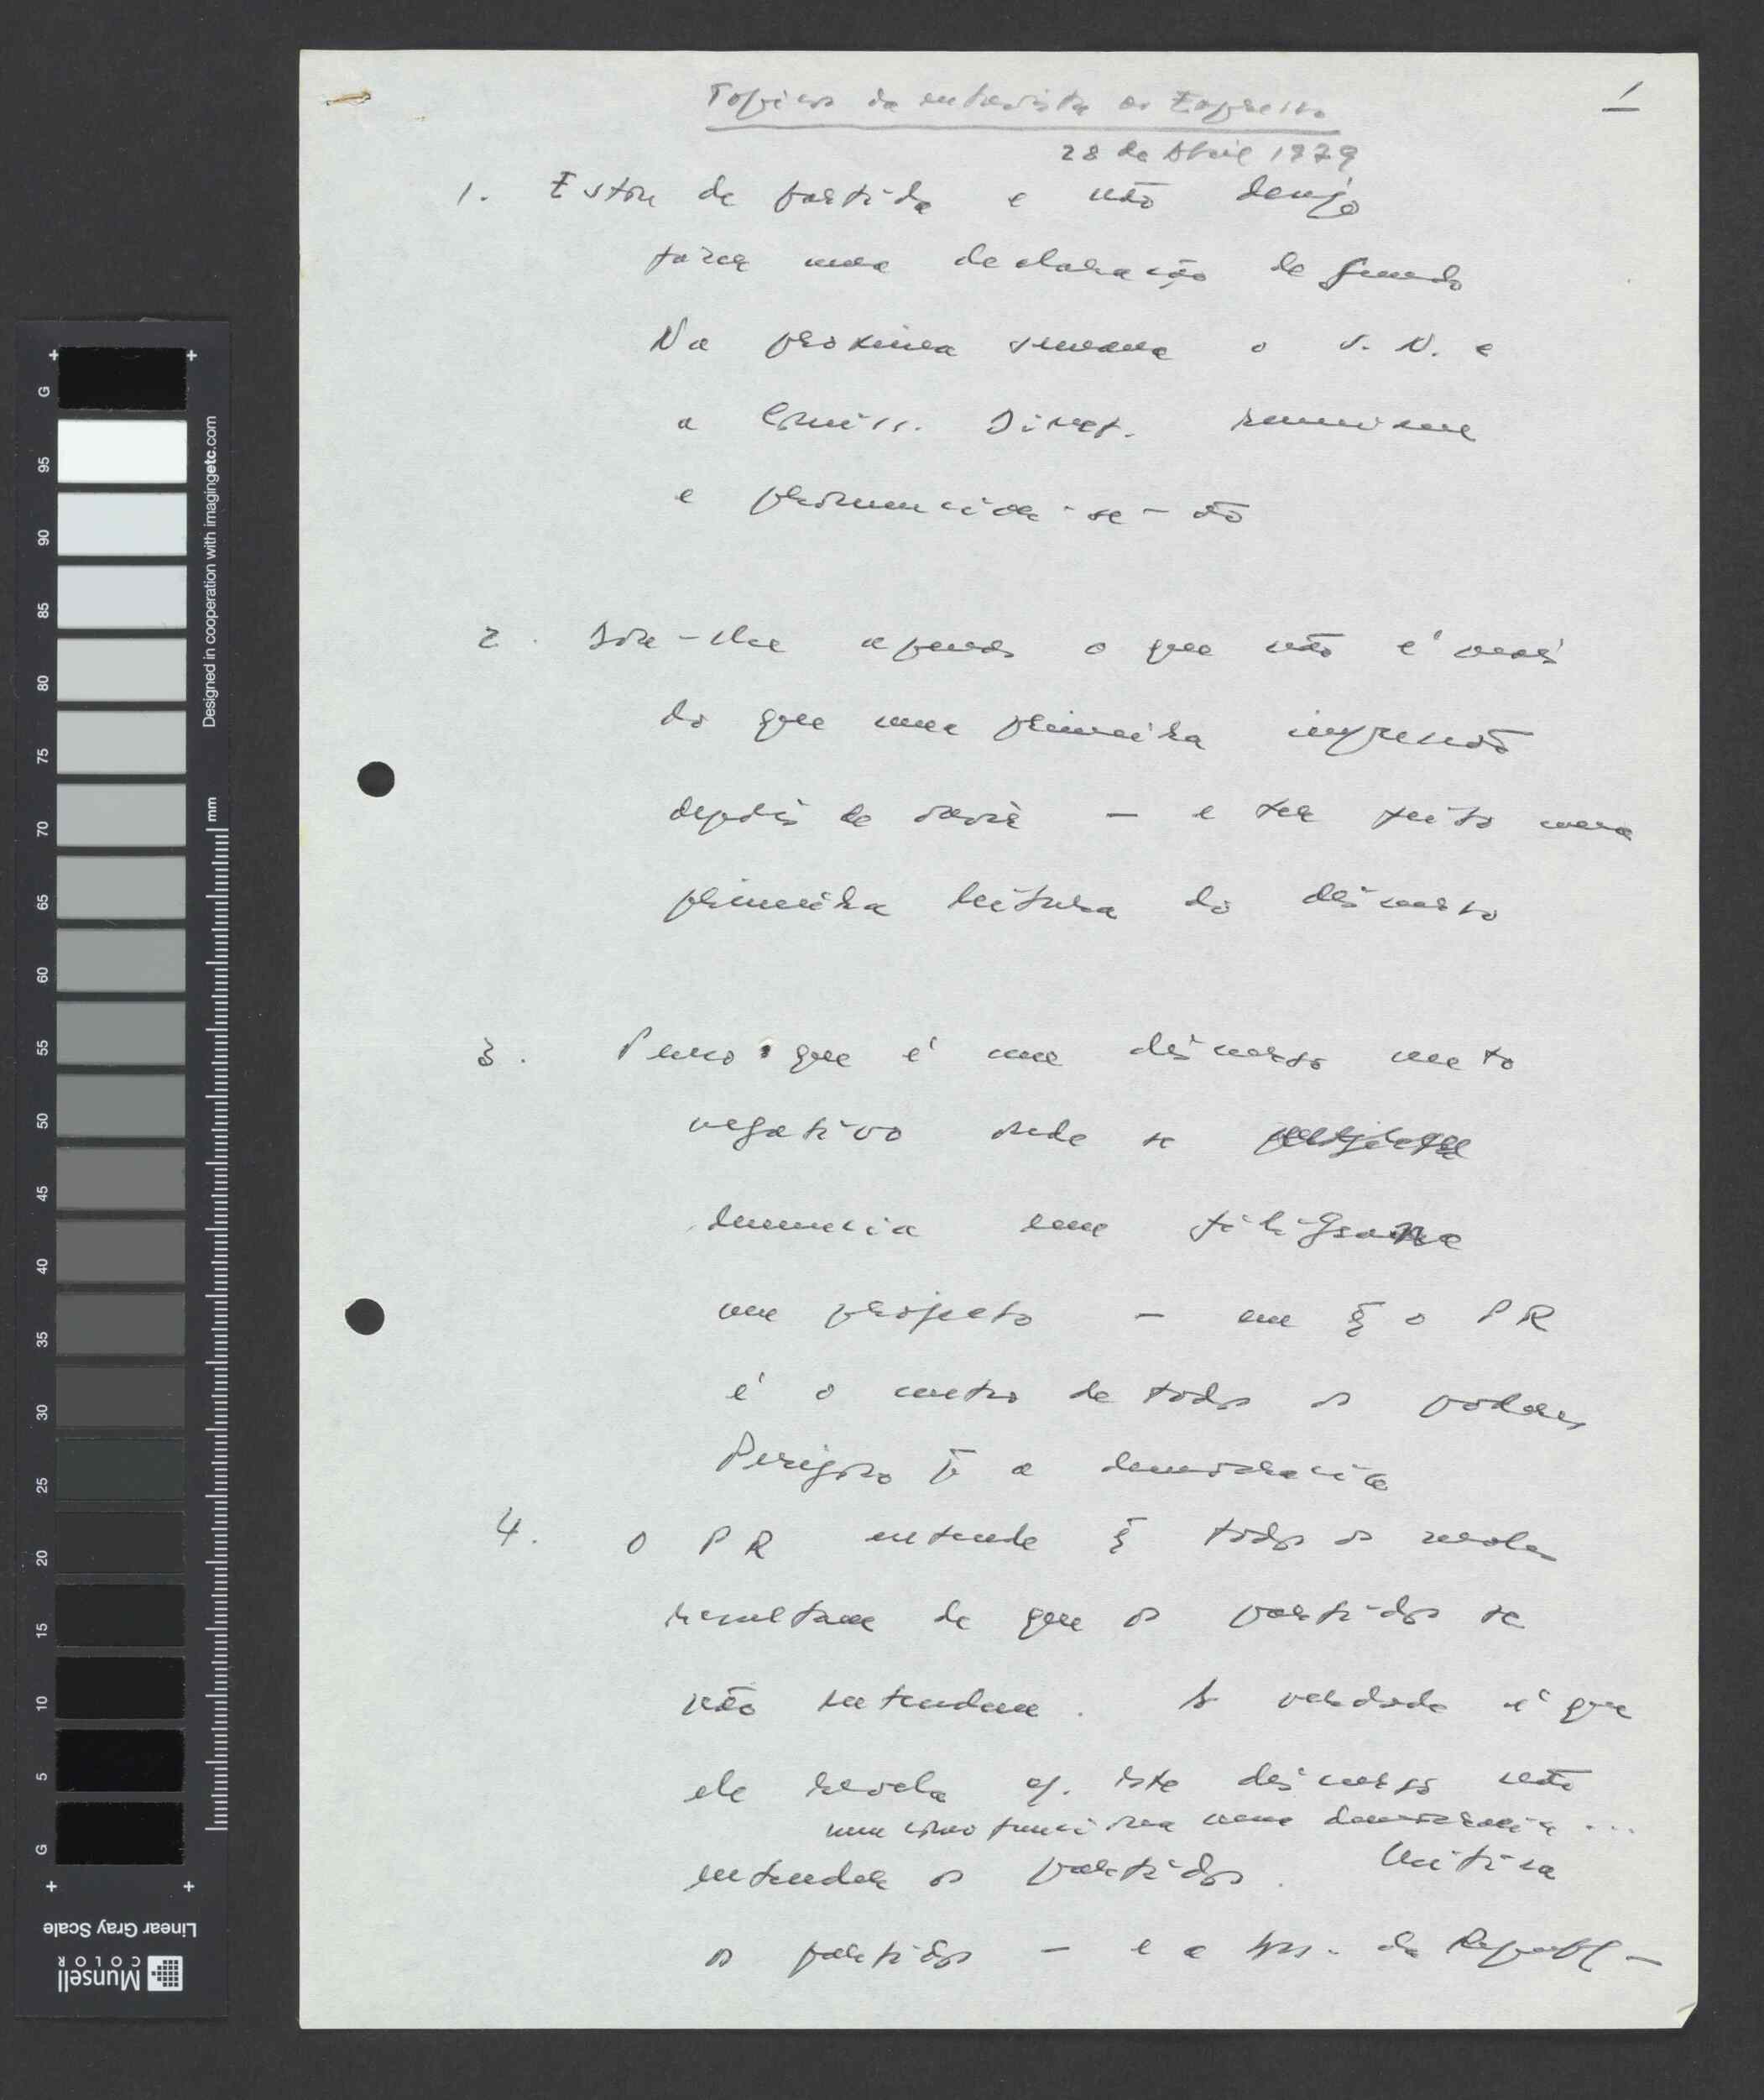 1
Topicos da entrevista ao Expresso
28 de Abril 1979
1. Estou de partida e não desejo
fazer uma declaração de fundo
Na proxima semana o S. N. e
a Comiss. Direct. reunirse
e pronunciar-se-ão
2. Dou-lhe apenas o que não é mais
do que uma primeira impressão
depois de ouvir — e ter feito uma
primeira leitura do discurso
3. Penso que é um discurso mto
negativo onde se
denuncia em filigrana
um projecto — em q̃ o PR
é o centro de todos os poderes
Perigoso p̃ a democracia
4. O PR entende q̃ todos os males
resultam de que os partidos se
não entendem. A verdade é que
ele revela c/. este discurso não
nem como funciona uma democracia ...
entender os partidos. Critica
os partidos — e a Ass. da Republ —
Designed in cooperation with imagingetc.com
mm
G
95
90
85
80
75
70
65
60
55
50
45
40
35
30
25
20
15
10
5
G
Linear Gray Scale
Munsell
COLOR